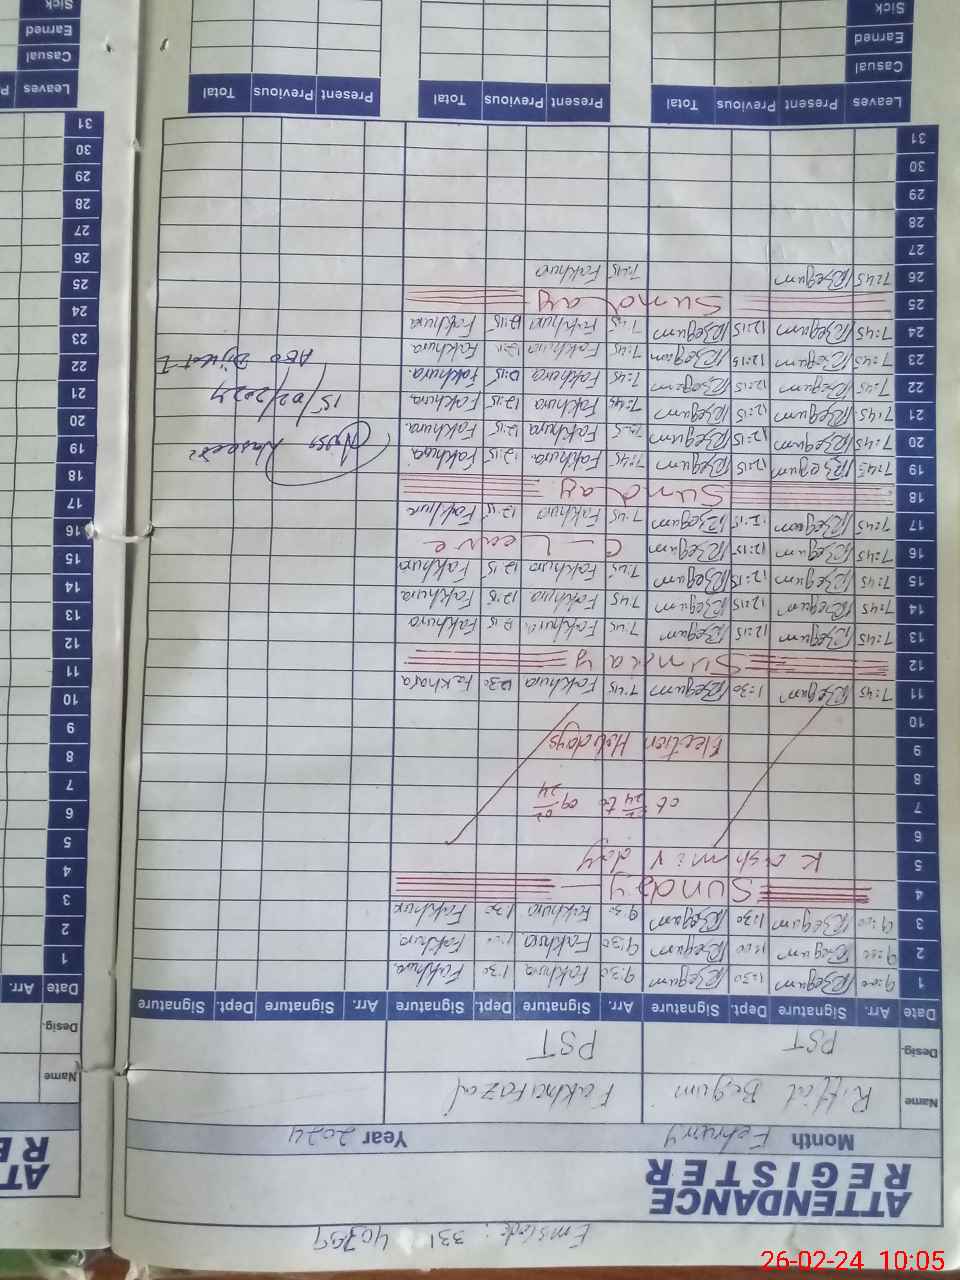 Emiscode: 331 40359
ATTENDANCE
REGISTER
Month Februry Year 2024
Name Riffat Begum Fakhrafazal
Desig. PST PST
Date Arr. Signature Dept. Signature Arr. Signature Dept. Signature Arr. Signature Dept. Signature
1 9:00 RBegum 1:30 RBegum 9:30 Fakhura 1:30 Fakhura
2 9:00 RBegum 1:00 RBegum 9:30 Fakhura 1:00 Fakhura
3 9:00 RBegum 1:30 RBegum 9:30 Fakhura 1:30 Fakhura
4 Sunday
5 Kashmir day
6
7 06/02/24 to 09/02/24
8
9 Election Holidays
10
11 7:45 RBegum 1:30 RBegum 7:45 Fakhura 12:30 Fakhara
12 Sunday
13 7:45 RBegum 12:15 RBegum 7:45 Fakhura 12:15 Fakhura
14 7:45 RBegum 12:15 RBegum 7:45 Fakhura 12:15 Fakhura
15 7:45 RBegum 12:15 RBegum 7:45 Fakhura 12:15 Fakhura
16 7:45 RBegum 12:15 RBegum C - Leave
17 7:45 RBegum 12:15 RBegum 7:45 Fakhura 12:15 Fakhura
18 Sunday
19 7:45 RBegum 12:15 RBegum 7:45 Fakhura 12:15 Fakhura
20 7:45 RBegum 12:15 RBegum 7:45 Fakhura 12:15 Fakhura
21 7:45 RBegum 12:15 RBegum 7:45 Fakhura 12:15 Fakhura
22 7:45 RBegum 12:15 RBegum 7:45 Fakhura 12:15 Fakhura
23 7:45 RBegum 12:15 RBegum 7:45 Fakhura 12:15 Fakhura
24 7:45 RBegum 12:15 RBegum 7:45 Fakhura 12:15 Fakhura
25 Sunday
26 7:45 RBegum 7:45 Fakhura
27
28
29
30
31
15/02/2024
Leaves Present Previous Total Present Previous Total Present Previous Total
Casual
Earned
Sick
ATT
RE
Name
Desig.
Date Arr.
1
2
3
4
5
6
7
8
9
10
11
12
13
14
15
16
17
18
19
20
21
22
23
24
25
26
27
28
29
30
31
Leaves P
Casual
Earned
Sick
26-02-24 10:05